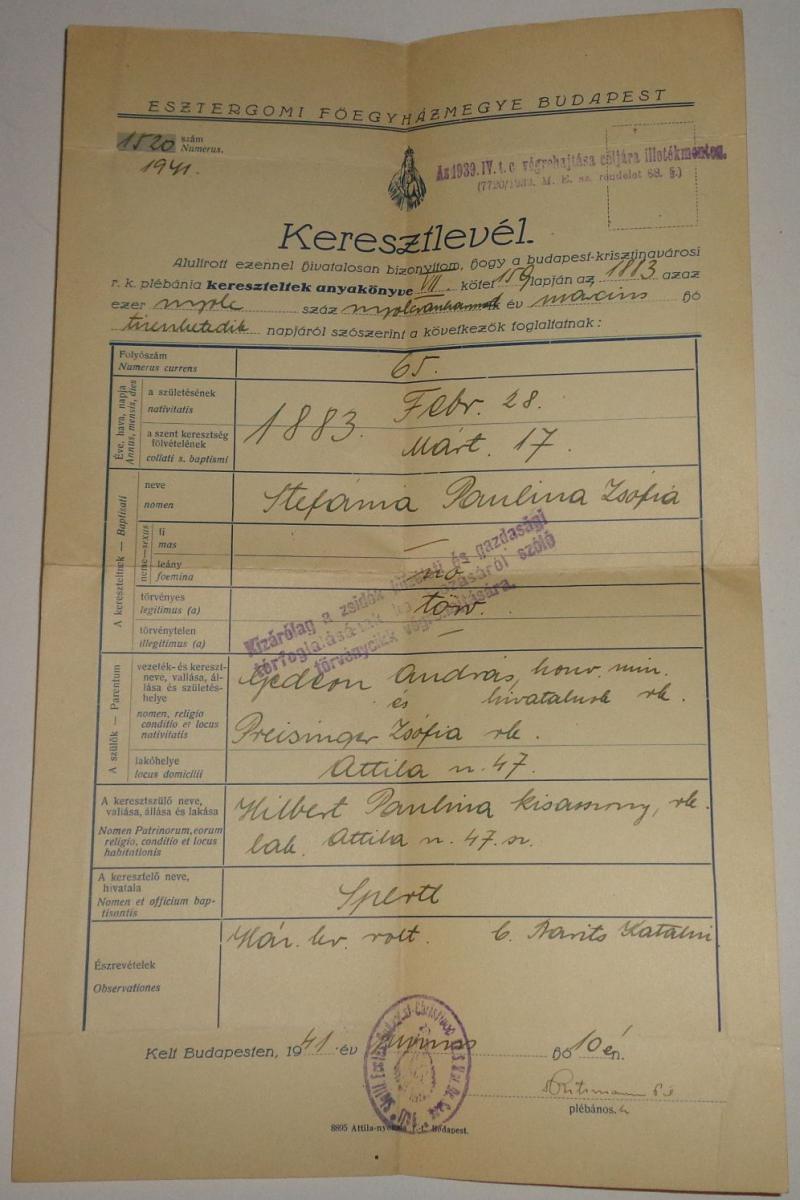 ESZTERGOMI FŐEGYHÁZMEGYE BUDAPEST
1520 szám
Numerus.
1941.
Az 1939. IV. t. c végrehajtása céljára illetékmentes.
(7720/1939. M. E. sz. rendelet 68. §.)
Keresztlevél.
Alulírott ezennel hivatalosan bizonyítom, hogy a budapest-krisztinavárosi
r. k. plébánia kereszteltek anyakönyve VII. kötet 159 lapján az 1883 azaz
ezer nyolc száz nyolcvanharmadik év március hó
tizenhetedik napjáról szószerint a következők foglaltatnak:
Folyószám
Numerus currens
65.
Éve, hava, napja
Annus, mensis, dies
a születésének
nativitatis
1883. Febr. 28.
a szent keresztség
fölvételének
collati s. baptismi
Márt. 17.
A kereszteltnek — Baptisati
neve
nomen
Stefánia Paulina Zsófia
neme—sexus
fi
mas
—
leány
foemina
nő
törvényes
legitimus (a)
törv.
törvénytelen
illegitimus (a)
—
Kizárólag a zsidók közéleti és gazdasági
térfoglalásának korlátozásáról szóló
törvénycikk végrehajtására.
A szülők — Parentum
vezeték- és kereszt-
neve, vallása, ál-
lása és születés-
helye
nomen, religio
conditio et locus
nativitatis
Gedeon András, honv. min.
és hivatalnok rk.
Preisinger Zsófia rk.
lakóhelye
locus domicilii
Attila u. 47.
A keresztszülő neve,
vallása, állása és lakása
Nomen Patrinorum, eorum
religio, conditio et locus
habitationis
Hilbert Paulina kisasszony, rk.
lak. Attila u. 47. sz.
A keresztelő neve,
hivatala
Nomen et officium bap-
tisantis
Észrevételek
Observationes
Ház. lev. volt. Katalin
Kelt Budapesten, 1941 év június hó 10 én.
plébános.
8895 Attila-nyomda r.-t. Budapest.